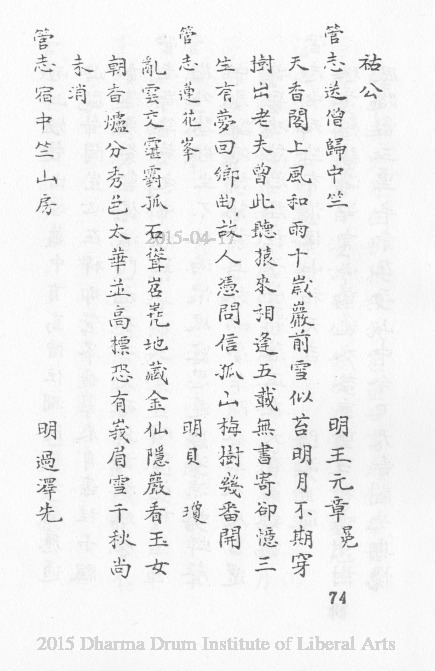 祐公
管志送僧歸中竺　明王元章冕
天香閣上風和雨十歲巖前雪似苔明月不期穿
樹出老夫曾此聽猿來相逢五載無書寄卻憶三
生有夢回鄉曲故人憑問信孤山梅樹幾番開
管志蓮花峯　明貝瓊
亂雲交霮䨴孤石聳岧嶤地藏金仙隱巖看玉女
朝香爐分秀色太華並高標恐有峩眉雪千秋尚
未消
管志宿中竺山房　明過澤先
74
2015-04-17
2015 Dharma Drum Institute of Liberal Arts